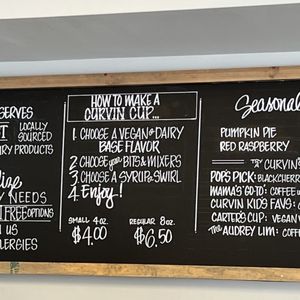 ERVES
LOCALLY
SOURCED
DAIRY PRODUCTS
NEEDS
FREE OPTIONS
US
LLERGIES
HOW TO MAKE A
CURVIN CUP...
1. CHOOSE A VEGAN or DAIRY
BASE FLAVOR
2. CHOOSE your BITS & MIXERS
3. CHOOSE A SYRUP & SWIRL
4. Enjoy!
SMALL 4oz. REGULAR 8oz.
$4.00 $6.50
Seasonal
PUMPKIN PIE
RED RASPBERRY
TRY CURVIN'S
POP'S PICK: BLACK CHERR
MAMA'S GO-TO: COFFEE
CURVIN KIDS FAVS:
CARTER'S CUP: VEGAN
THE AUDREY LIM: COFFEE